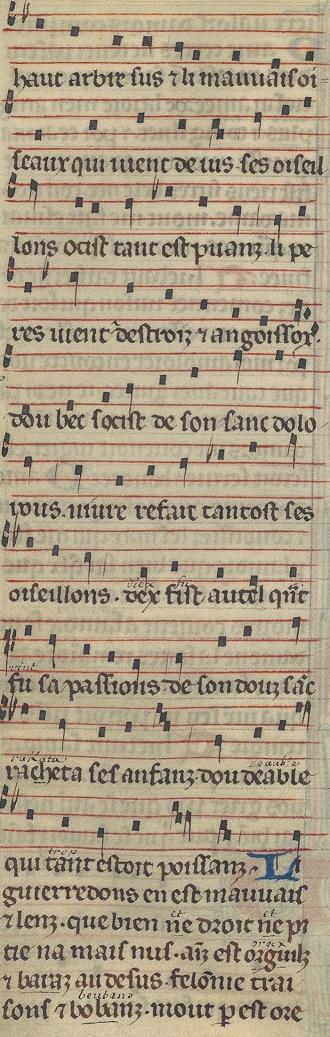 haut arbre sus ⁊ li mauuais oi
seaux qui uient de ius ses oiseil
lons ocist tant est puanz li pe
res uient destroiz ⁊ angoissox.
dou bec socist de son sanc dolo
rous. uiure refait tantost ses
diex fu
oiseillons. dex fist autel qnt
vint
fu sa passions de son douz sac
rakata deauble
racheta ses anfanz dou deable
trop
qui tant estoit poissanz. L
guierredons en est mauuais
et et
⁊ lenz. que bien ne droit ne pi
tie na mais nus. ainz est orguilz
⁊ baraz au desus. felonie trai
beubanz
sons ⁊ bobanz. mout p est ore